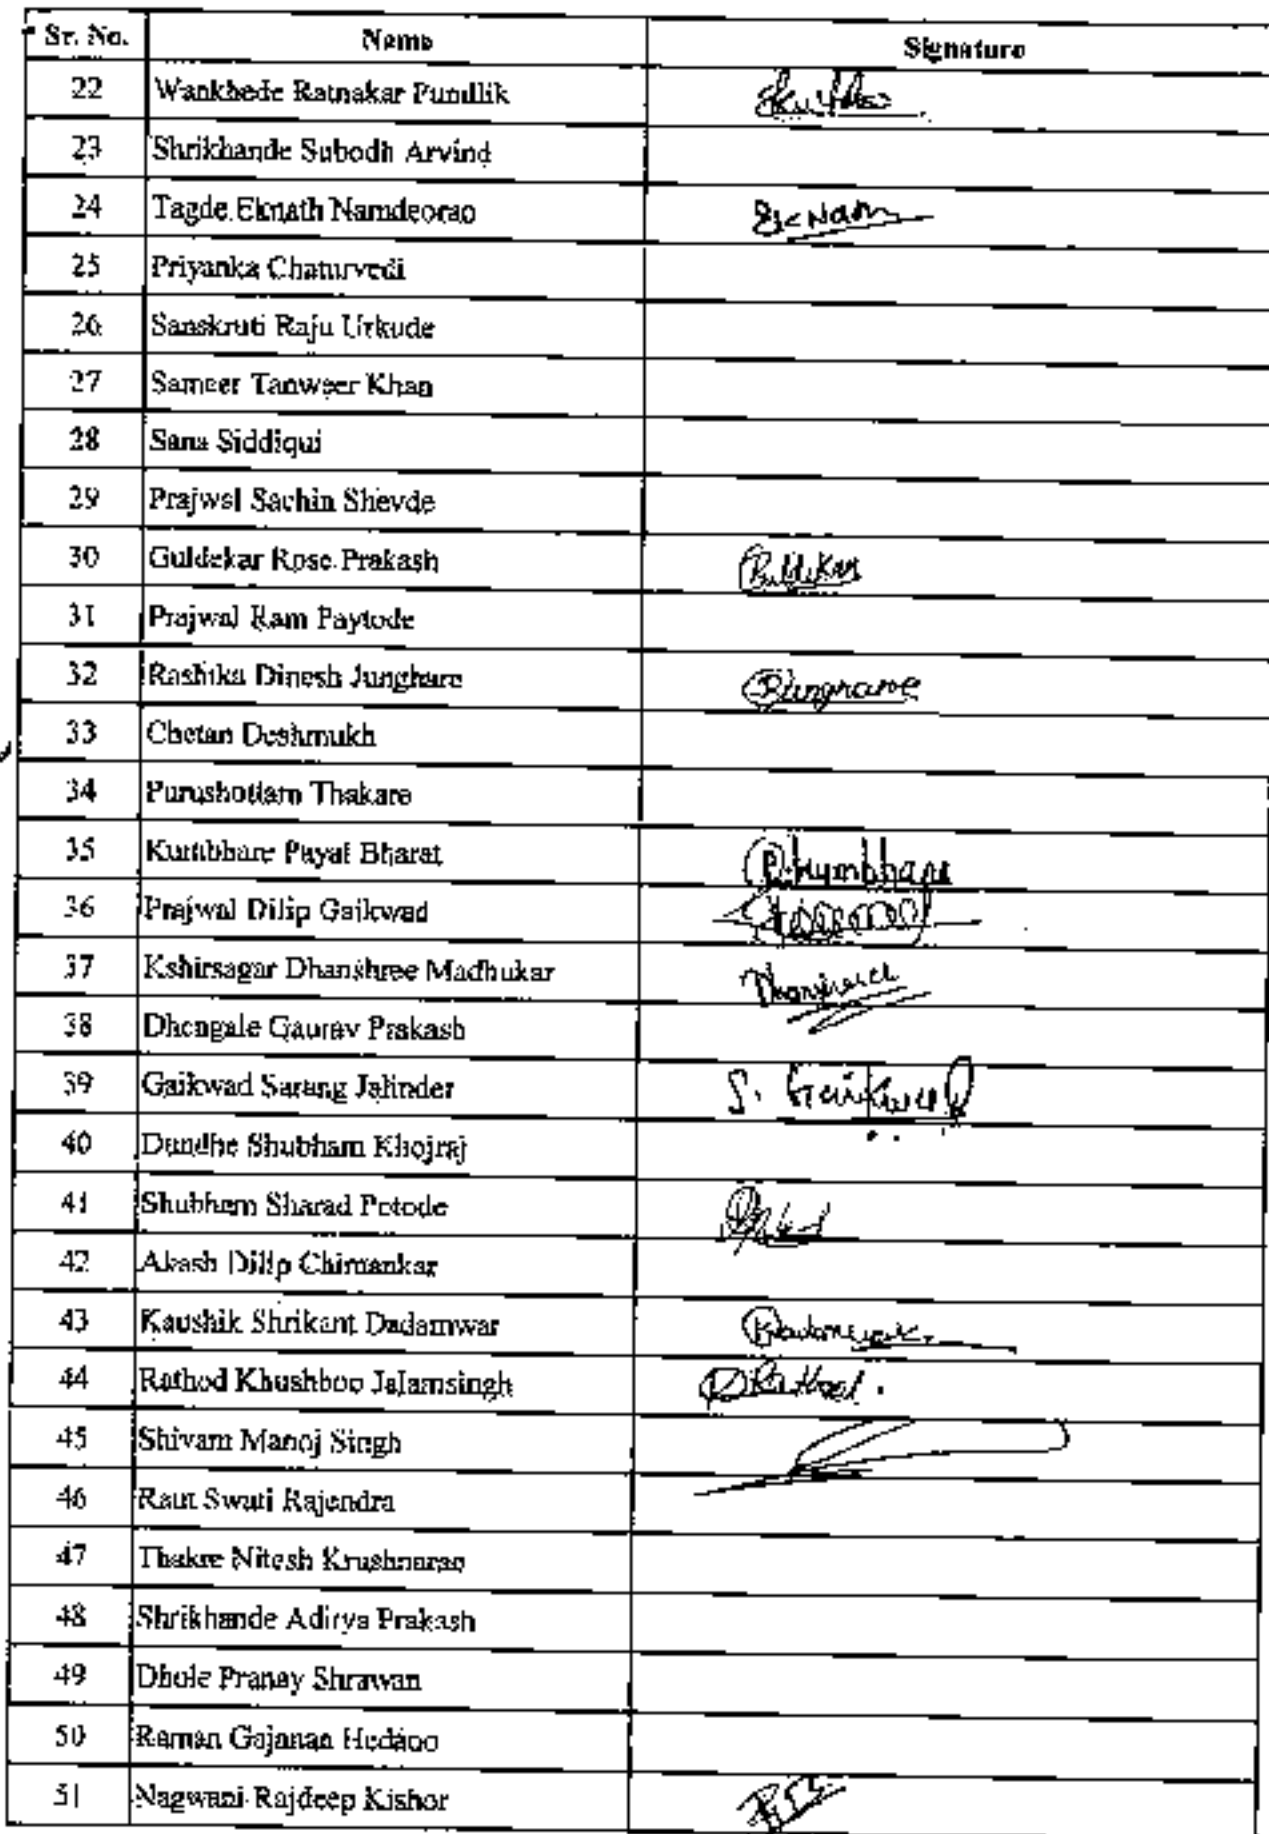 Sr. No. Name Signature
22 Wankhede Ratnakar Pundlik
23 Shrikhande Subodh Arvind
24 Tagde Eknath Namdeorao
25 Priyanka Chaturvedi
26 Sanskruti Raju Urkude
27 Sameer Tanweer Khan
28 Sana Siddiqui
29 Prajwal Sachin Shevde
30 Guldekar Rose Prakash
31 Prajwal Ram Paytode
32 Rashika Dinesh Junghare
33 Chetan Deshmukh
34 Purushottam Thakare
35 Kumbhare Payal Bharat P. Kumbhare
36 Prajwal Dilip Gaikwad
37 Kshirsagar Dhanshree Madhukar
38 Dhengale Gaurav Prakash
39 Gaikwad Sarang Jalinder S. Gaikwad
40 Dundhe Shubham Khojraj
41 Shubham Sharad Potode
42 Akash Dilip Chimankar
43 Kaushik Shrikant Dadamwar
44 Rathod Khushboo Jalamsingh
45 Shivam Manoj Singh
46 Raut Swati Rajendra
47 Thakre Nitesh Krushnarao
48 Shrikhande Aditya Prakash
49 Dhole Pranay Shrawan
50 Raman Gajanan Hedaoo
51 Nagwani Rajdeep Kishor